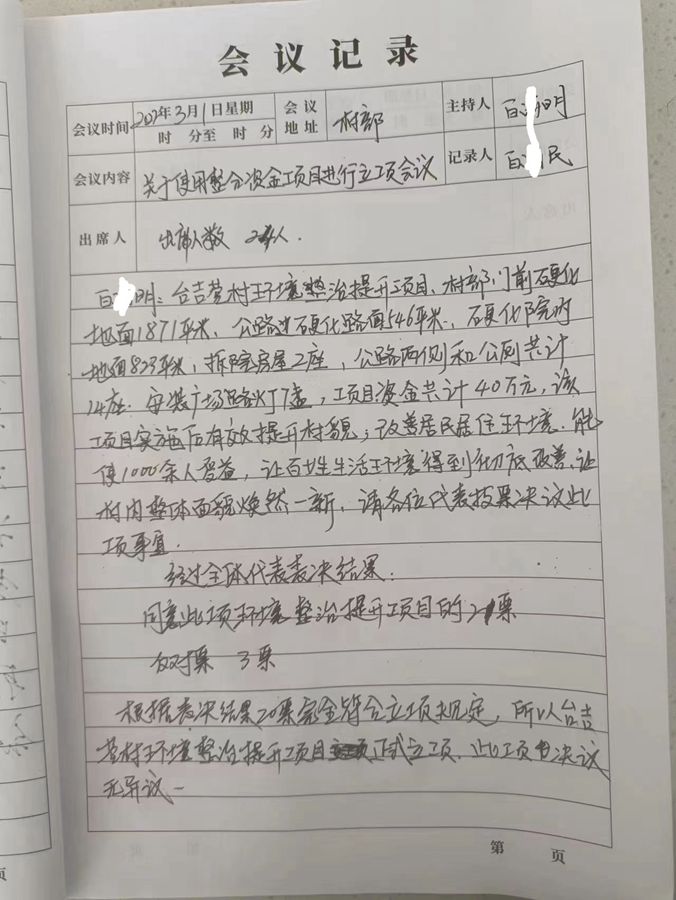 会议记录
会议时间 2022年3月1日星期 时 分至 时 分 会议地址 村部 主持人 百 明
会议内容 关于使用整合资金项目进行立项会议 记录人 百 民
出席人 出席人数 24人.
百 明: 台吉营村环境整治提升项目、村部门前硬化
地面1871平米、公路边硬化路面546平米、硬化院内
地面823平米, 拆除房屋2座, 公路两侧和公厕共计
14座. 安装广场路灯7盏, 项目资金共计40万元, 该
项目实施后有效提升村貌; 改善居民居住环境. 能
使1000余人受益, 让百姓生活环境得到彻底改善、让
村内整体面貌焕然一新, 请各位代表投票决议此
项事宜.
经过全体代表表决结果:
同意此项环境整治提升项目的21票
反对票 3票
根据表决结果20票完全符合立项规定, 所以台吉
营村环境整治提升项目 正式立项, 此项目决议
无异议.
第 页
页